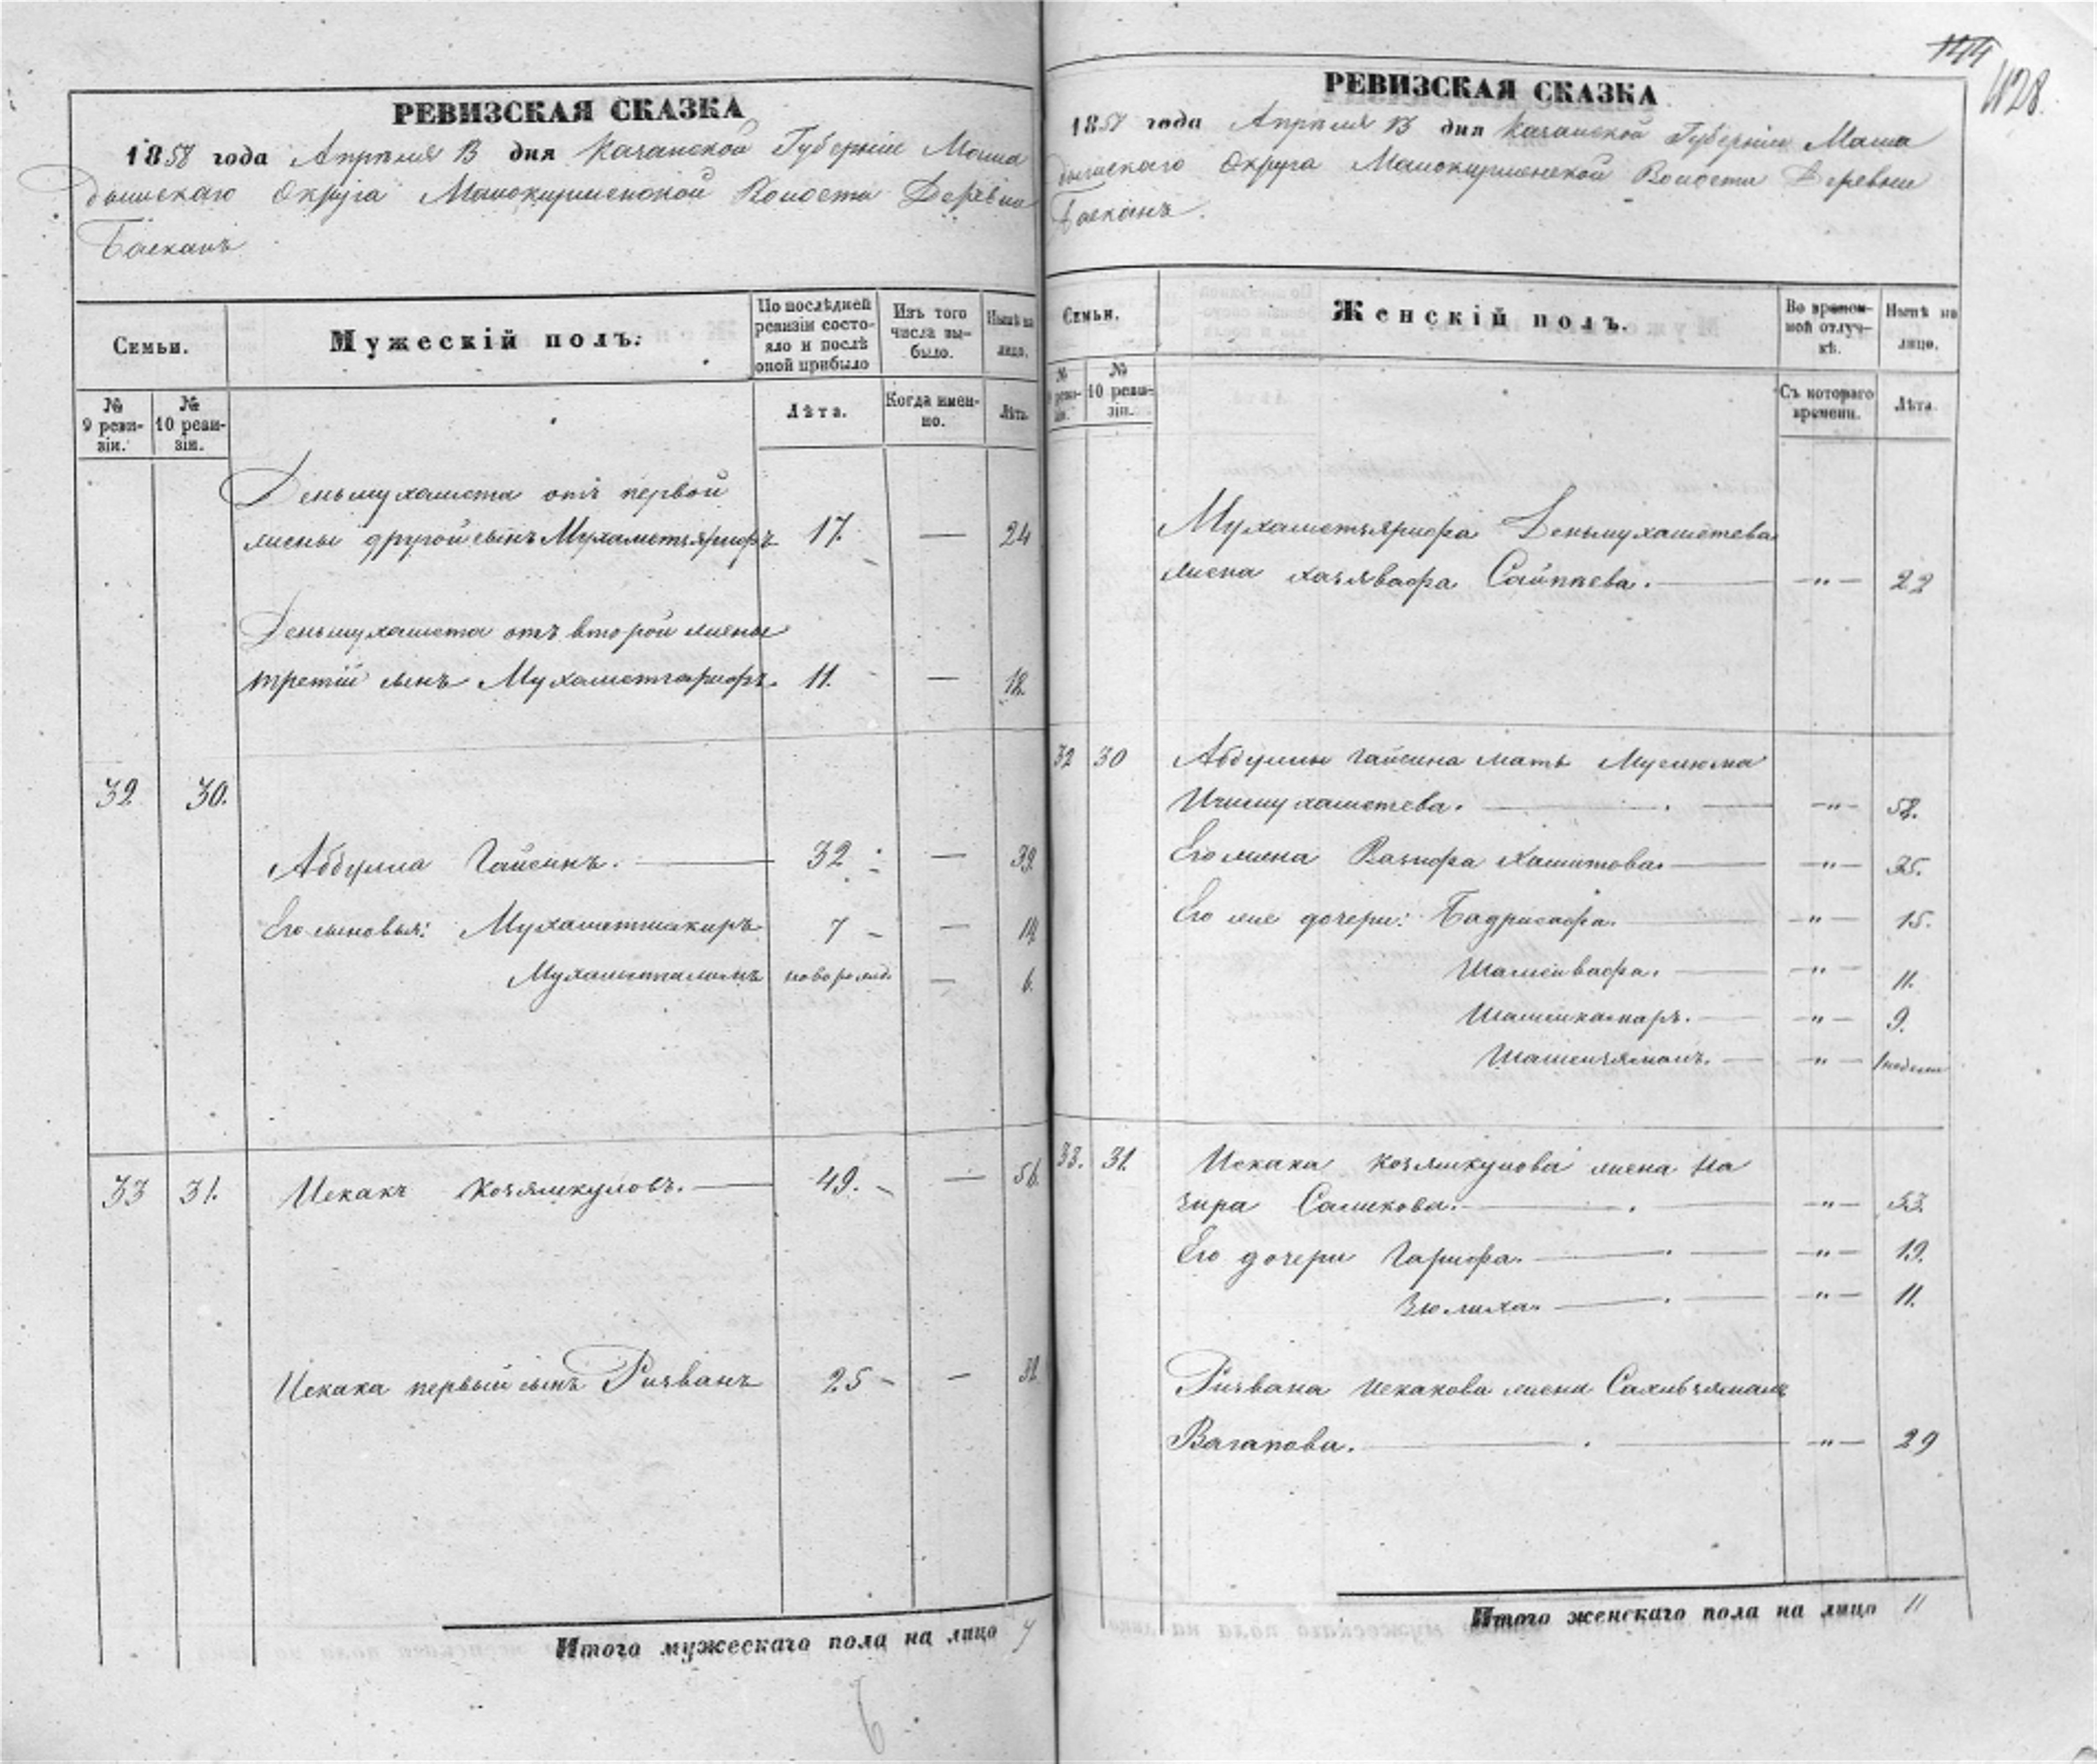 РЕВИЗСКАЯ СКАЗКА
1858 года Апрѣля 13 дня Казанской Губерніи Мама
дышскаго Округа Малокирменской Волости Деревни
Мужескій полъ.
Семьи.
По послѣдней ревизіи состояло и послѣ оной прибыло
Изъ того числа выбыло.
Нынѣ на лицо.
№ 9 ревизіи.
№ 10 ревизіи.
Лѣта.
Когда именно.
Лѣта.
Деньмухамета отъ первой
жены другой сынъ Мухаметьярифъ 17. — 24
Деньмухамета отъ второй жены
третій сынъ Мухаметгарифъ. 11. — 18.
32 30.
Абдулла Гайсинъ. — 32 — 39
Его сыновья: Мухаметшакиръ 7 — 14
новорожд. — 6.
33 31. Исхакъ Козямкуловъ. — 49. — 56.
Исхака первый сынъ Ризванъ 25 — 32
Итого мужескаго пола на лицо 7
6
144
428.
РЕВИЗСКАЯ СКАЗКА
1858 года Апрѣля 13 дня Казанской Губерніи Мама
дышскаго Округа Малокирменской Волости Деревни
Семьи.
Женскій полъ.
Во временной отлучкѣ.
Нынѣ на лицо.
№ 9 ревизіи.
№ 10 ревизіи.
Съ котораго времени.
Лѣта.
Мухаметьярифа Деньмухаметева
жена Сайпаева. — „ — 22
32 30 Абдуллы Гайсина мать Муслюма
Ишмухаметева. — „ — 58.
Его жена Вазифа Хамитова. — „ — 35.
Его же дочери: Бадрисафа. — „ — 15.
Шамсивафа. — „ — 11.
Шамсикамаръ. — „ — 9.
Шамсизяманъ. — „ — 1 недели
33. 31. Исхака Козямкулова жена На
зира Салихова. — „ — 53.
Его дочери Гарифа. — „ — 19.
Зюлиха. — „ — 11.
Ризвана Исхакова жена Сахибзямалъ
Вагапова. — „ — 29
Итого женскаго пола на лицо 11